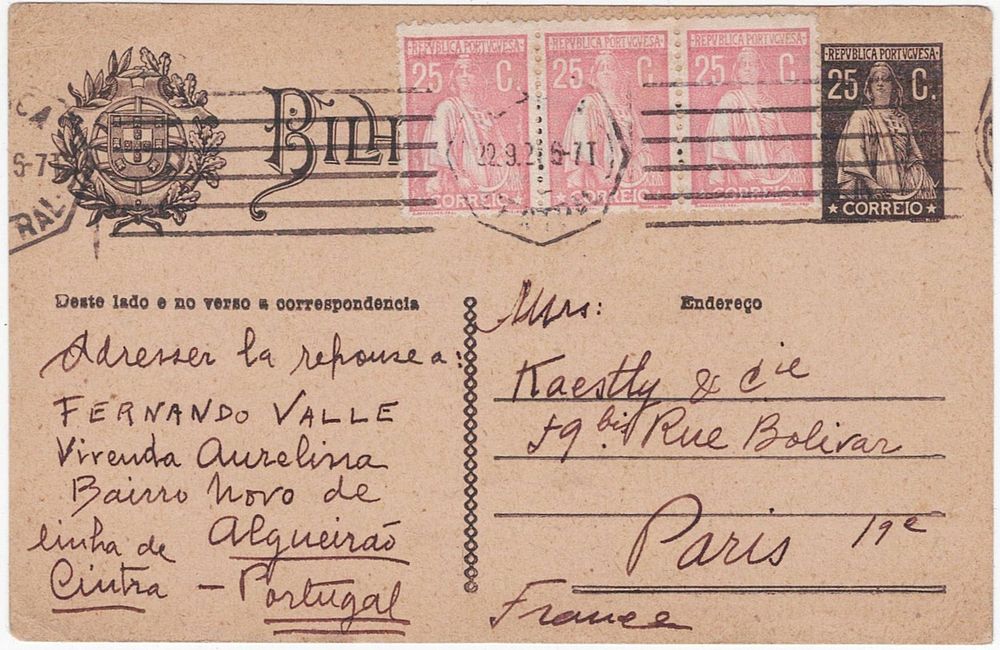 REPVBLICA PORTVGVESA
25 C.
CORREIO
REPVBLICA PORTVGVESA
25 C.
CORREIO
REPVBLICA PORTVGVESA
25 C.
CORREIO
REPVBLICA PORTVGVESA
25 C.
CORREIO
BILH
CA
6-7T
RAL
22.9.2 6-7T
Deste lado e no verso a correspondencia
Adresser la reponse a:
FERNANDO VALLE
Vivenda Aurelina
Bairro Novo de
Algueirão
linha de
Cintra – Portugal
Endereço
Mrs:
Kaestly & Cie
59 bis Rue Bolivar
Paris 19e
France